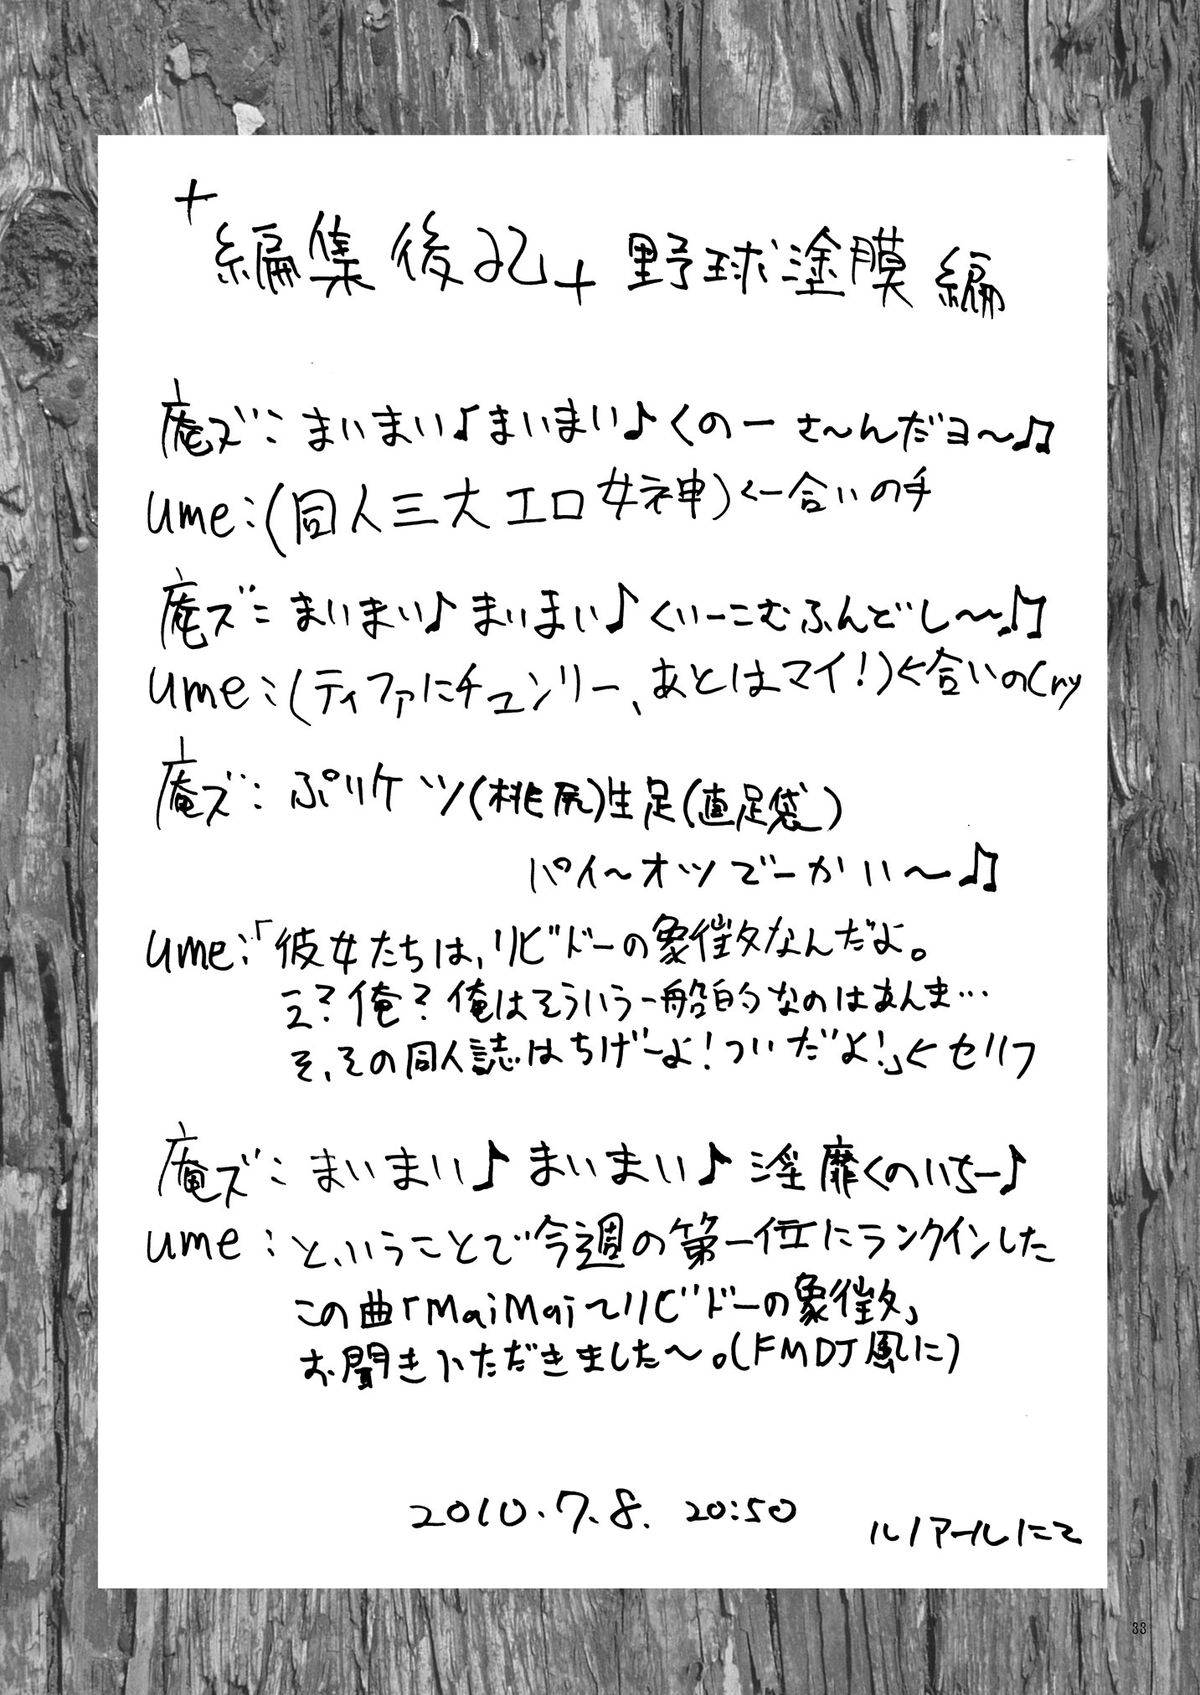 +編集後記+ 野球塗膜編
庵ズ:まいまい♪まいまい♪くのーさ〜んだヨ〜♫
ume:(同人三大エロ女神)←合いの手
庵ズ:まいまい♪まいまい♪くいーこむふんどし〜♫
ume:(ティファにチュンリー、あとはマイ!)←合いの(ry
庵ズ:ぷりケツ(桃尻)生足(直足袋)
パイ〜オツでーかい〜♫
ume:「彼女たちは、リビドーの象徴なんだよ。
え?俺?俺はそういう一般的なのはあんま…
そ、その同人誌はちげーよ!ついだよ!」←セリフ
庵ズ:まいまい♪まいまい♪淫靡くのいちー♪
ume:と、いうことで今週の第一位にランクインした
この曲「MaiMai〜リビドーの象徴」
お聞きいただきました〜。(FMDJ風に)
2010.7.8. 20:50
ルノアールにて
33